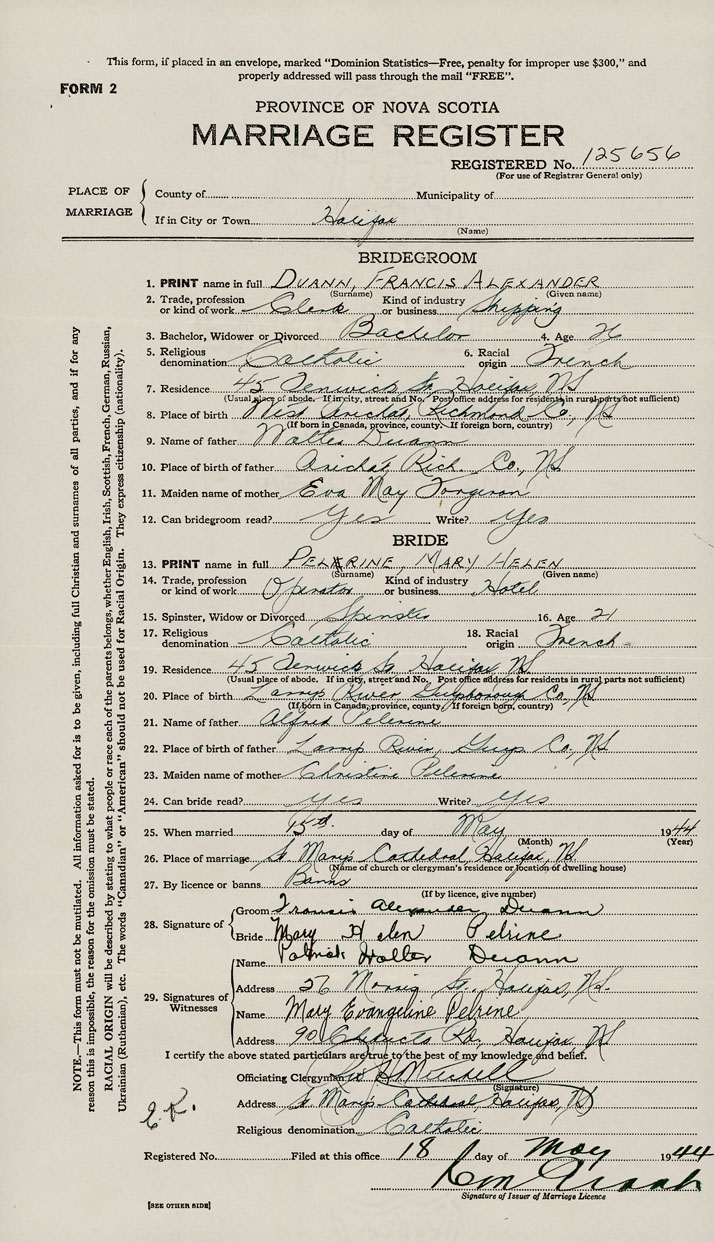 This form, if placed in an envelope, marked "Dominion Statistics—Free, penalty for improper use $300," and
properly addressed will pass through the mail "FREE".
FORM 2
PROVINCE OF NOVA SCOTIA
MARRIAGE REGISTER
REGISTERED No. 125656
(For use of Registrar General only)
PLACE OF MARRIAGE
County of Municipality of
If in City or Town Halifax
(Name)
BRIDEGROOM
1. PRINT name in full DUANN, FRANCIS ALEXANDER
(Surname) (Given name)
2. Trade, profession or kind of work Clerk Kind of industry or business Shipping
3. Bachelor, Widower or Divorced Bachelor 4. Age
5. Religious denomination Catholic 6. Racial origin French
7. Residence 45 Fenwick St, Halifax, NS
(Usual place of abode. If in city, street and No. Post office address for residents in rural parts not sufficient)
8. Place of birth West Arichat, Richmond Co., NS
(If born in Canada, province, county. If foreign born, country)
9. Name of father Walter Duann
10. Place of birth of father Arichat Rich. Co., NS
11. Maiden name of mother Eva May Forgeron
12. Can bridegroom read? Yes Write? Yes
BRIDE
13. PRINT name in full PELRINE, MARY HELEN
(Surname) (Given name)
14. Trade, profession or kind of work Operator Kind of industry or business Hotel
15. Spinster, Widow or Divorced Spinster 16. Age 21
17. Religious denomination Catholic 18. Racial origin French
19. Residence 45 Fenwick St, Halifax NS
(Usual place of abode. If in city, street and No. Post office address for residents in rural parts not sufficient)
20. Place of birth Larrys River Guysborough Co., NS
(If born in Canada, province, county. If foreign born, country)
21. Name of father Alfred Pelrine
22. Place of birth of father Larrys River, Guys Co., NS
23. Maiden name of mother Christine Pelrine
24. Can bride read? Yes Write? Yes
25. When married 15th day of May 1944
(Month) (Year)
26. Place of marriage St. Mary's Cathedral, Halifax, NS
(Name of church or clergyman's residence or location of dwelling house)
27. By licence or banns Banns
(If by licence, give number)
28. Signature of
Groom Francis Alexander Duann
Bride Mary Helen Pelrine
29. Signatures of Witnesses
Name Patrick Walter Duann
Address 56 Morris St, Halifax, N.S.
Name Mary Evangeline Pelrine
Address 90 Chebucto Rd, Halifax, NS
I certify the above stated particulars are true to the best of my knowledge and belief.
Officiating Clergyman
(Signature)
Address St. Mary's Cathedral Halifax, NS
Religious denomination Catholic
Registered No. Filed at this office 18 day of May 1944
Signature of Issuer of Marriage Licence
[SEE OTHER SIDE]
NOTE.—This form must not be mutilated. All information asked for is to be given, including full Christian and surnames of all parties, and if for any
reason this is impossible, the reason for the omission must be stated.
RACIAL ORIGIN will be described by stating to what people or race each of the parents belongs, whether English, Irish, Scottish, French, German, Russian,
Ukrainian (Ruthenian), etc. The words "Canadian" or "American" should not be used for Racial Origin. They express citizenship (nationality).